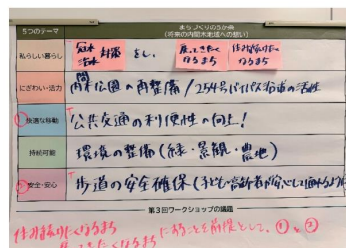 5つのテーマ
まちづくりの方策
(将来の内間木地域への想い)
私らしい暮らし
冠水 浸水 対策 をし、 戻ってきたくなるまち 住み続けたくなるまち
にぎわい・活力
内間木公園の再整備/254号バイパス沿道の活性
①快適な移動
公共交通の利便性の向上!
持続可能
環境の整備(緑・景観・農地)
②安全・安心
歩道の安全確保(子ども・高齢者が安心して通れるよう
第3回ワークショップの議題
住み続けたくなるまち
戻ってきたくなるまち になることを前提として、①と②